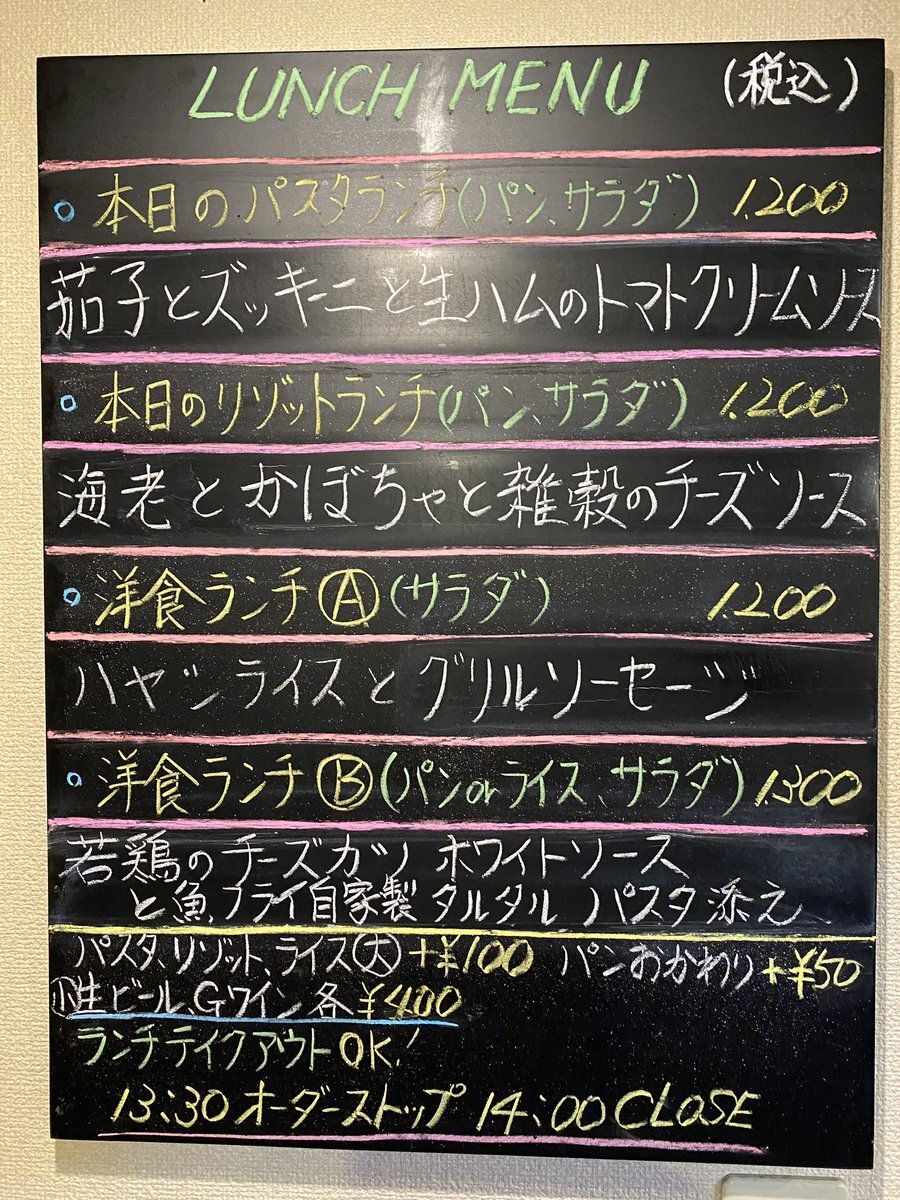 LUNCH MENU (税込)
本日のパスタランチ(パン、サラダ) 1.200
茄子とズッキーニと生ハムのトマトクリームソース
本日のリゾットランチ(パン、サラダ) 1.200
海老とかぼちゃと雑穀のチーズソース
洋食ランチⒶ(サラダ) 1.200
ハヤシライスとグリルソーセージ
洋食ランチⒷ(パンorライス、サラダ) 1.300
若鶏のチーズカツ ホワイトソース
と魚フライ自家製タルタル パスタ添え
パスタ、リゾット、ライス㊅ +¥100 パンおかわり +¥50
㊙生ビール、Gワイン 各¥400
ランチテイクアウトOK!
13:30オーダーストップ 14:00 CLOSE